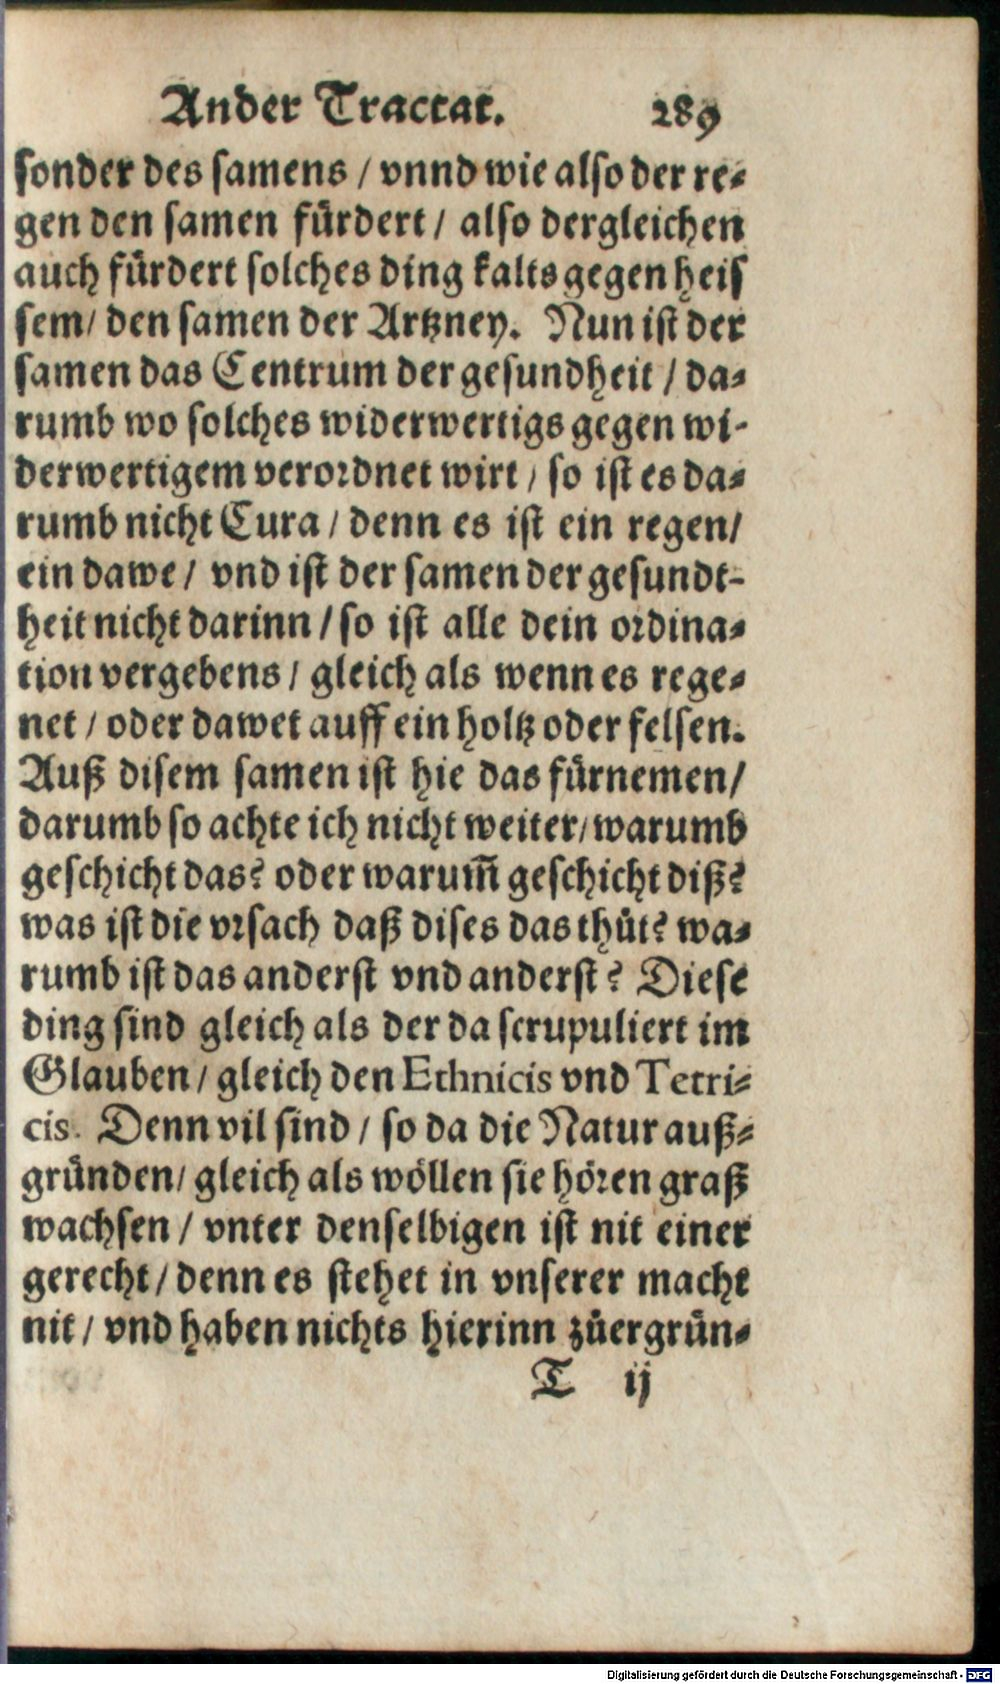 Ander Tractat. 289
sonder des samens / vnnd wie also der re-
gen den samen fürdert / also dergleichen
auch fürdert solches ding kalts gegen heis
sem / den samen der Artzney. Nun ist der
samen das Centrum der gesundheit / da-
rumb wo solches widerwertigs gegen wi-
derwertigem verordnet wirt / so ist es da-
rumb nicht Cura / denn es ist ein regen /
ein dawe / vnd ist der samen der gesundt-
heit nicht darinn / so ist alle dein ordina-
tion vergebens / gleich als wenn es rege-
net / oder dawet auff ein holtz oder felsen.
Auß disem samen ist hie das fürnemen /
darumb so achte ich nicht weiter / warumb
geschicht das? oder warum̃ geschicht diß?
was ist die vrsach daß dises das thůt? wa-
rumb ist das anderst vnd anderst? Diese
ding sind gleich als der da scrupuliert im
Glauben / gleich den Ethnicis vnd Tetri-
cis. Denn vil sind / so da die Natur auß-
gründen / gleich als wöllen sie hören graß
wachsen / vnter denselbigen ist nit einer
gerecht / denn es stehet in vnserer macht
nit / vnd haben nichts hierinn zůergrün-
T ij
Digitalisierung gefördert durch die Deutsche Forschungsgemeinschaft - DFG